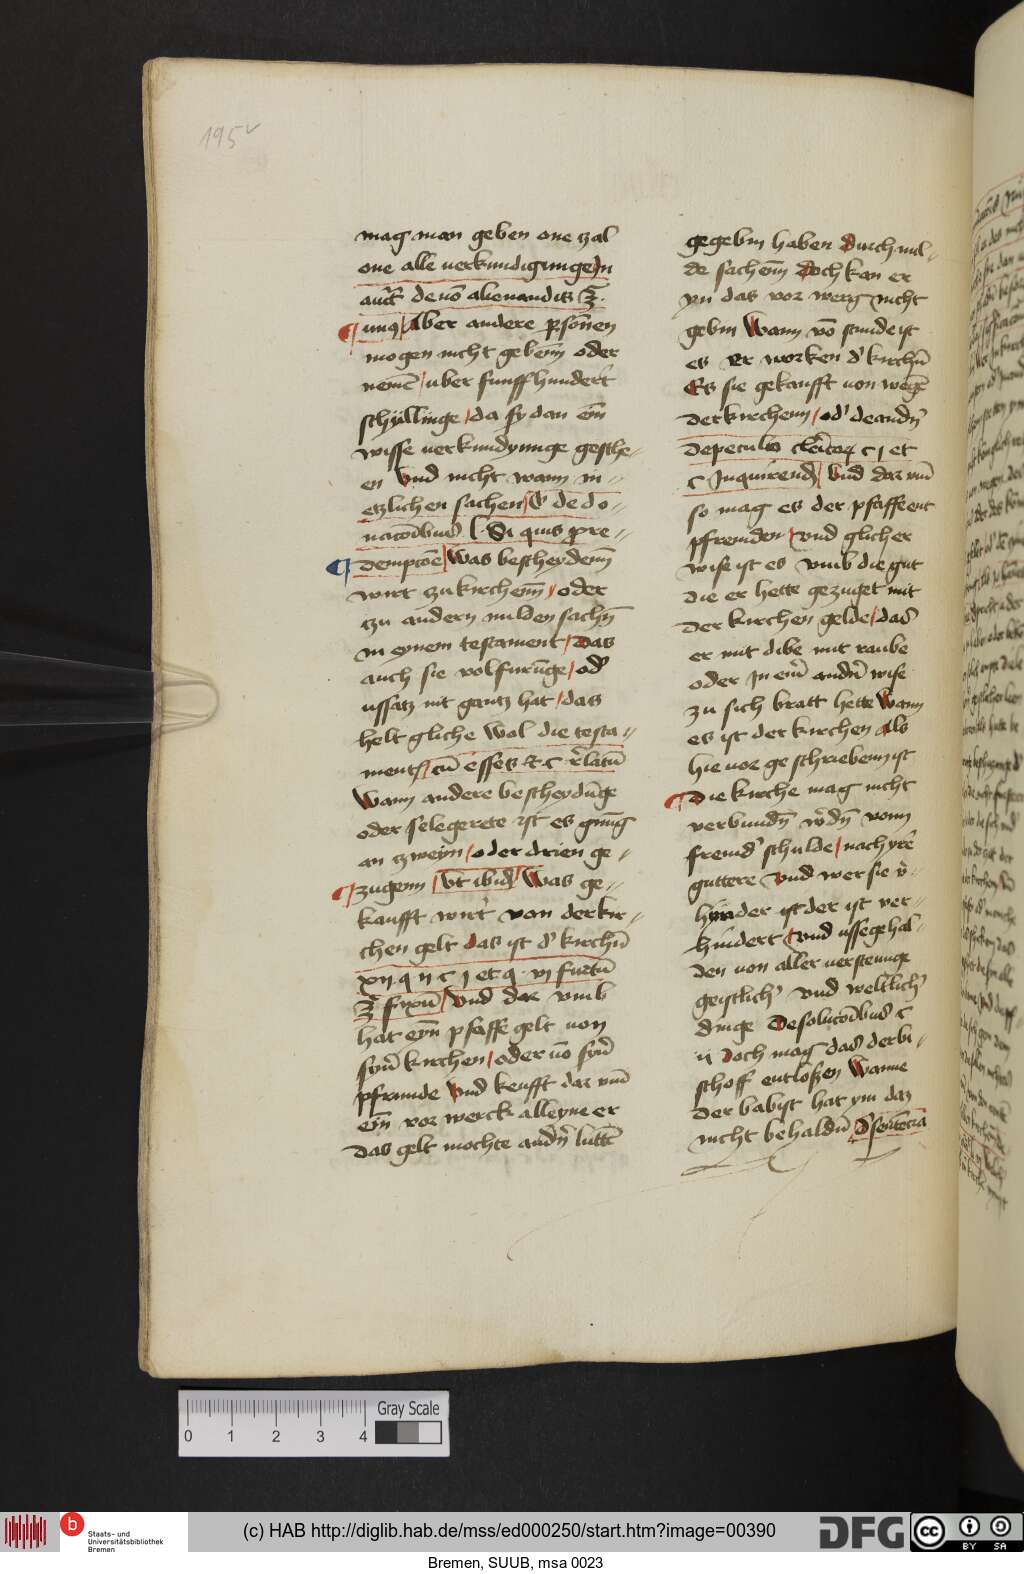 195v
mag man geben one zal
one alle uerkundigunge In
auct de no alienandis
unq Aber andere psonen
mogen nicht geben oder
nemē uber funffhundert
schyllinge da sy dan ein
wisse uerkundyunge geschee-
en Vnd nicht wann in
etzlichen sachen C de do-
nacoibus l Si quis pre-
dempcoe Was bescheydenn
wirt zu kirchenn oder
zu andern milden sachn
in eynem testament Das
auch sie volfurunge od
ussatz nit gantz hat das
helt gliche wol die testa-
ment cu esses et c relatu
Wann andere bescheydūge
oder selegerete ist es gnug
an zweyn oder drien ge-
zugenn Vt ibid Was ge-
kaufft wirt von der kir-
chen gelt das ist d kirchn
xii q ii c j et q vi furtu
fixu Vnd dar vmb
hat eyn pfaffe gelt uon
syn kirchen oder uo syn
pfrunde Vnd keufft dar vm
ein vor werck alleyne er
das gelt mochte andn lutt
gegebin haben Durch mil-
de sachenn Doch kan er
yn das vor werg nicht
gebin Wann vō stunde ist
es er worken d kirchn
Es sie gekaufft uon wegē
der kirchenn od de andn
De peculio clericorum c j et
c Inquirend Vnd dar um
so mag es der pfaffe ent
pfremden Vnd glicher
wise ist es vmb die gut
die er hette gezuget mit
der kirchen gelde das
er mit dibe mit raube
oder In em andn wise
zu sich bratt hette Wann
es ist der kirchen als
hie uor geschriebenn ist
Die kirche mag nicht
verbundn wdn vonn
fremd schulde nach yre
guttere Vnd wer sie v-
hynder ist der ist ver-
hindert Vnd ussegehal-
den uon aller uersteunge
geistlich vnd weltlich
dinge De solucoibus c
ii Doch mag das der bi-
schoff entloßen Wanne
der babist hat ym daz
nicht behaldn D sentecia
0 1 2 3 4
Gray Scale
b
Staats- und
Universitätsbibliothek
Bremen
(c) HAB http://diglib.hab.de/mss/ed000250/start.htm?image=00390
DFG
cc BY SA
Bremen, SUUB, msa 0023